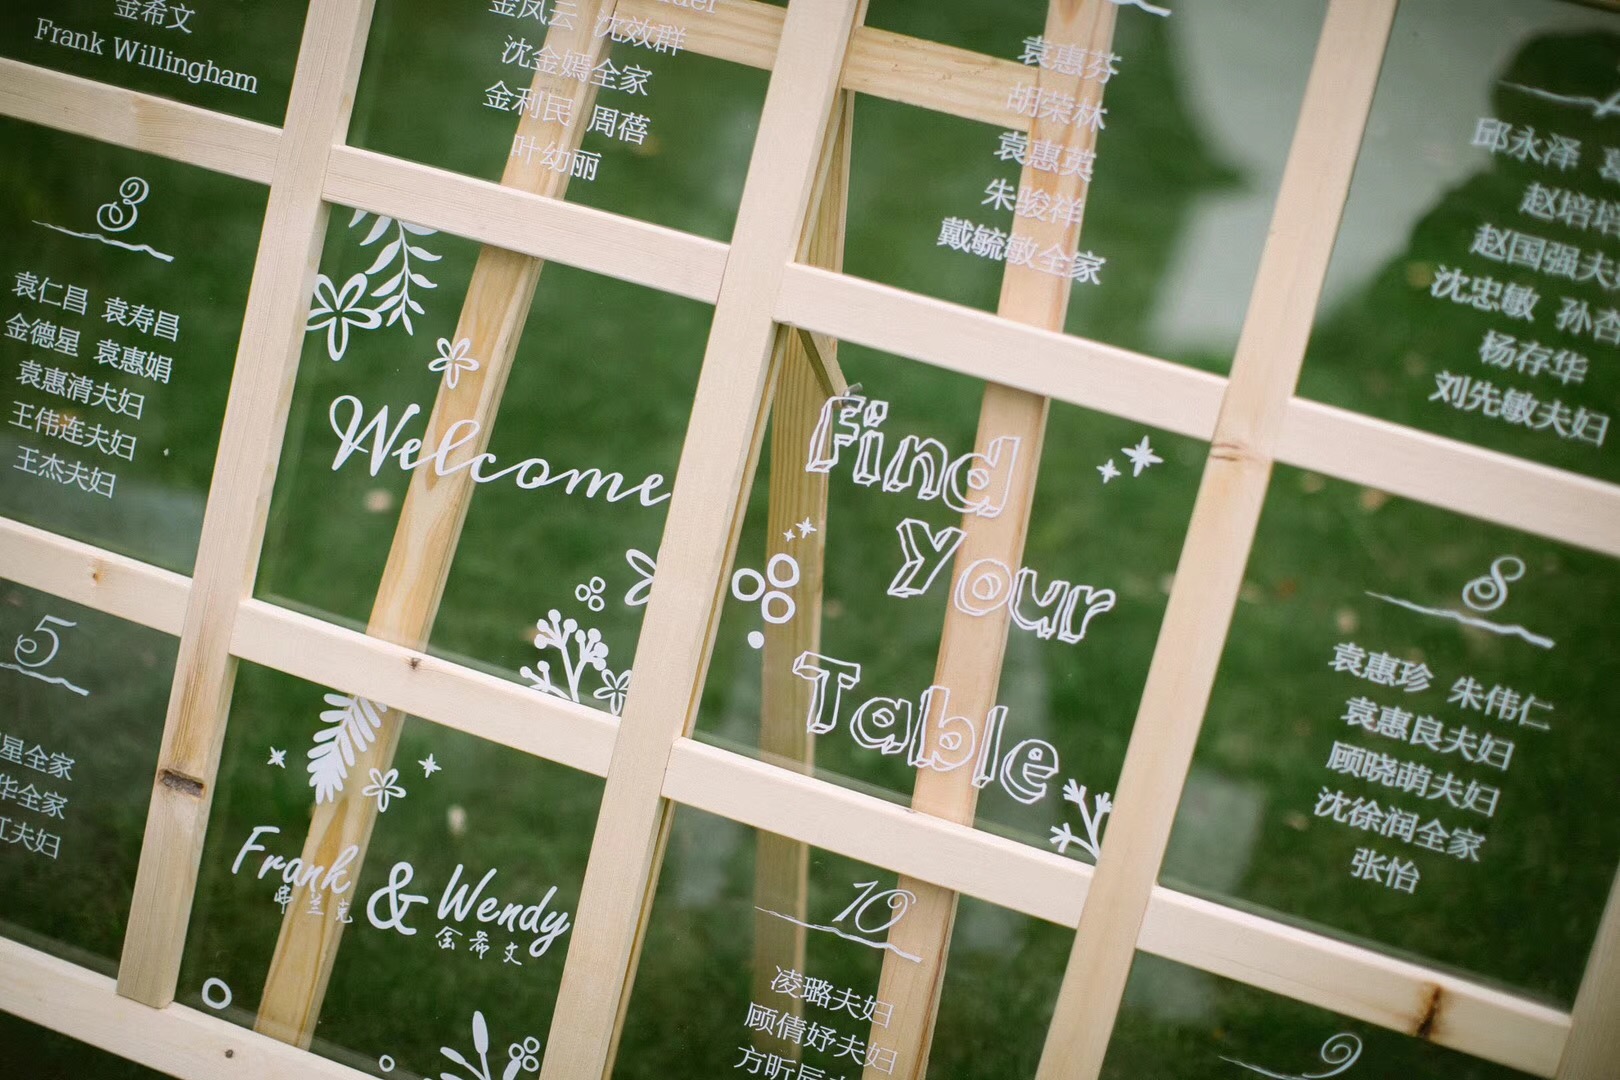 金希文
Frank Willingham
金凤云 沈效群
沈金嫣全家
金利民 周蓓
叶幼丽
袁惠芬
胡荣林
袁惠英
朱骏祥
戴毓敏全家
邱永泽
赵培培
赵国强夫
沈忠敏 孙杏
杨存华
刘先敏夫妇
3
袁仁昌 袁寿昌
金德星 袁惠娟
袁惠清夫妇
王伟连夫妇
王杰夫妇
Welcome
Find
Your
Table
8
袁惠珍 朱伟仁
袁惠良夫妇
顾晓萌夫妇
沈徐润全家
张怡
5
星全家
华全家
江夫妇
Frank & Wendy
串兰克 金希文
10
凌璐夫妇
顾倩妤夫妇
方昕辰
9